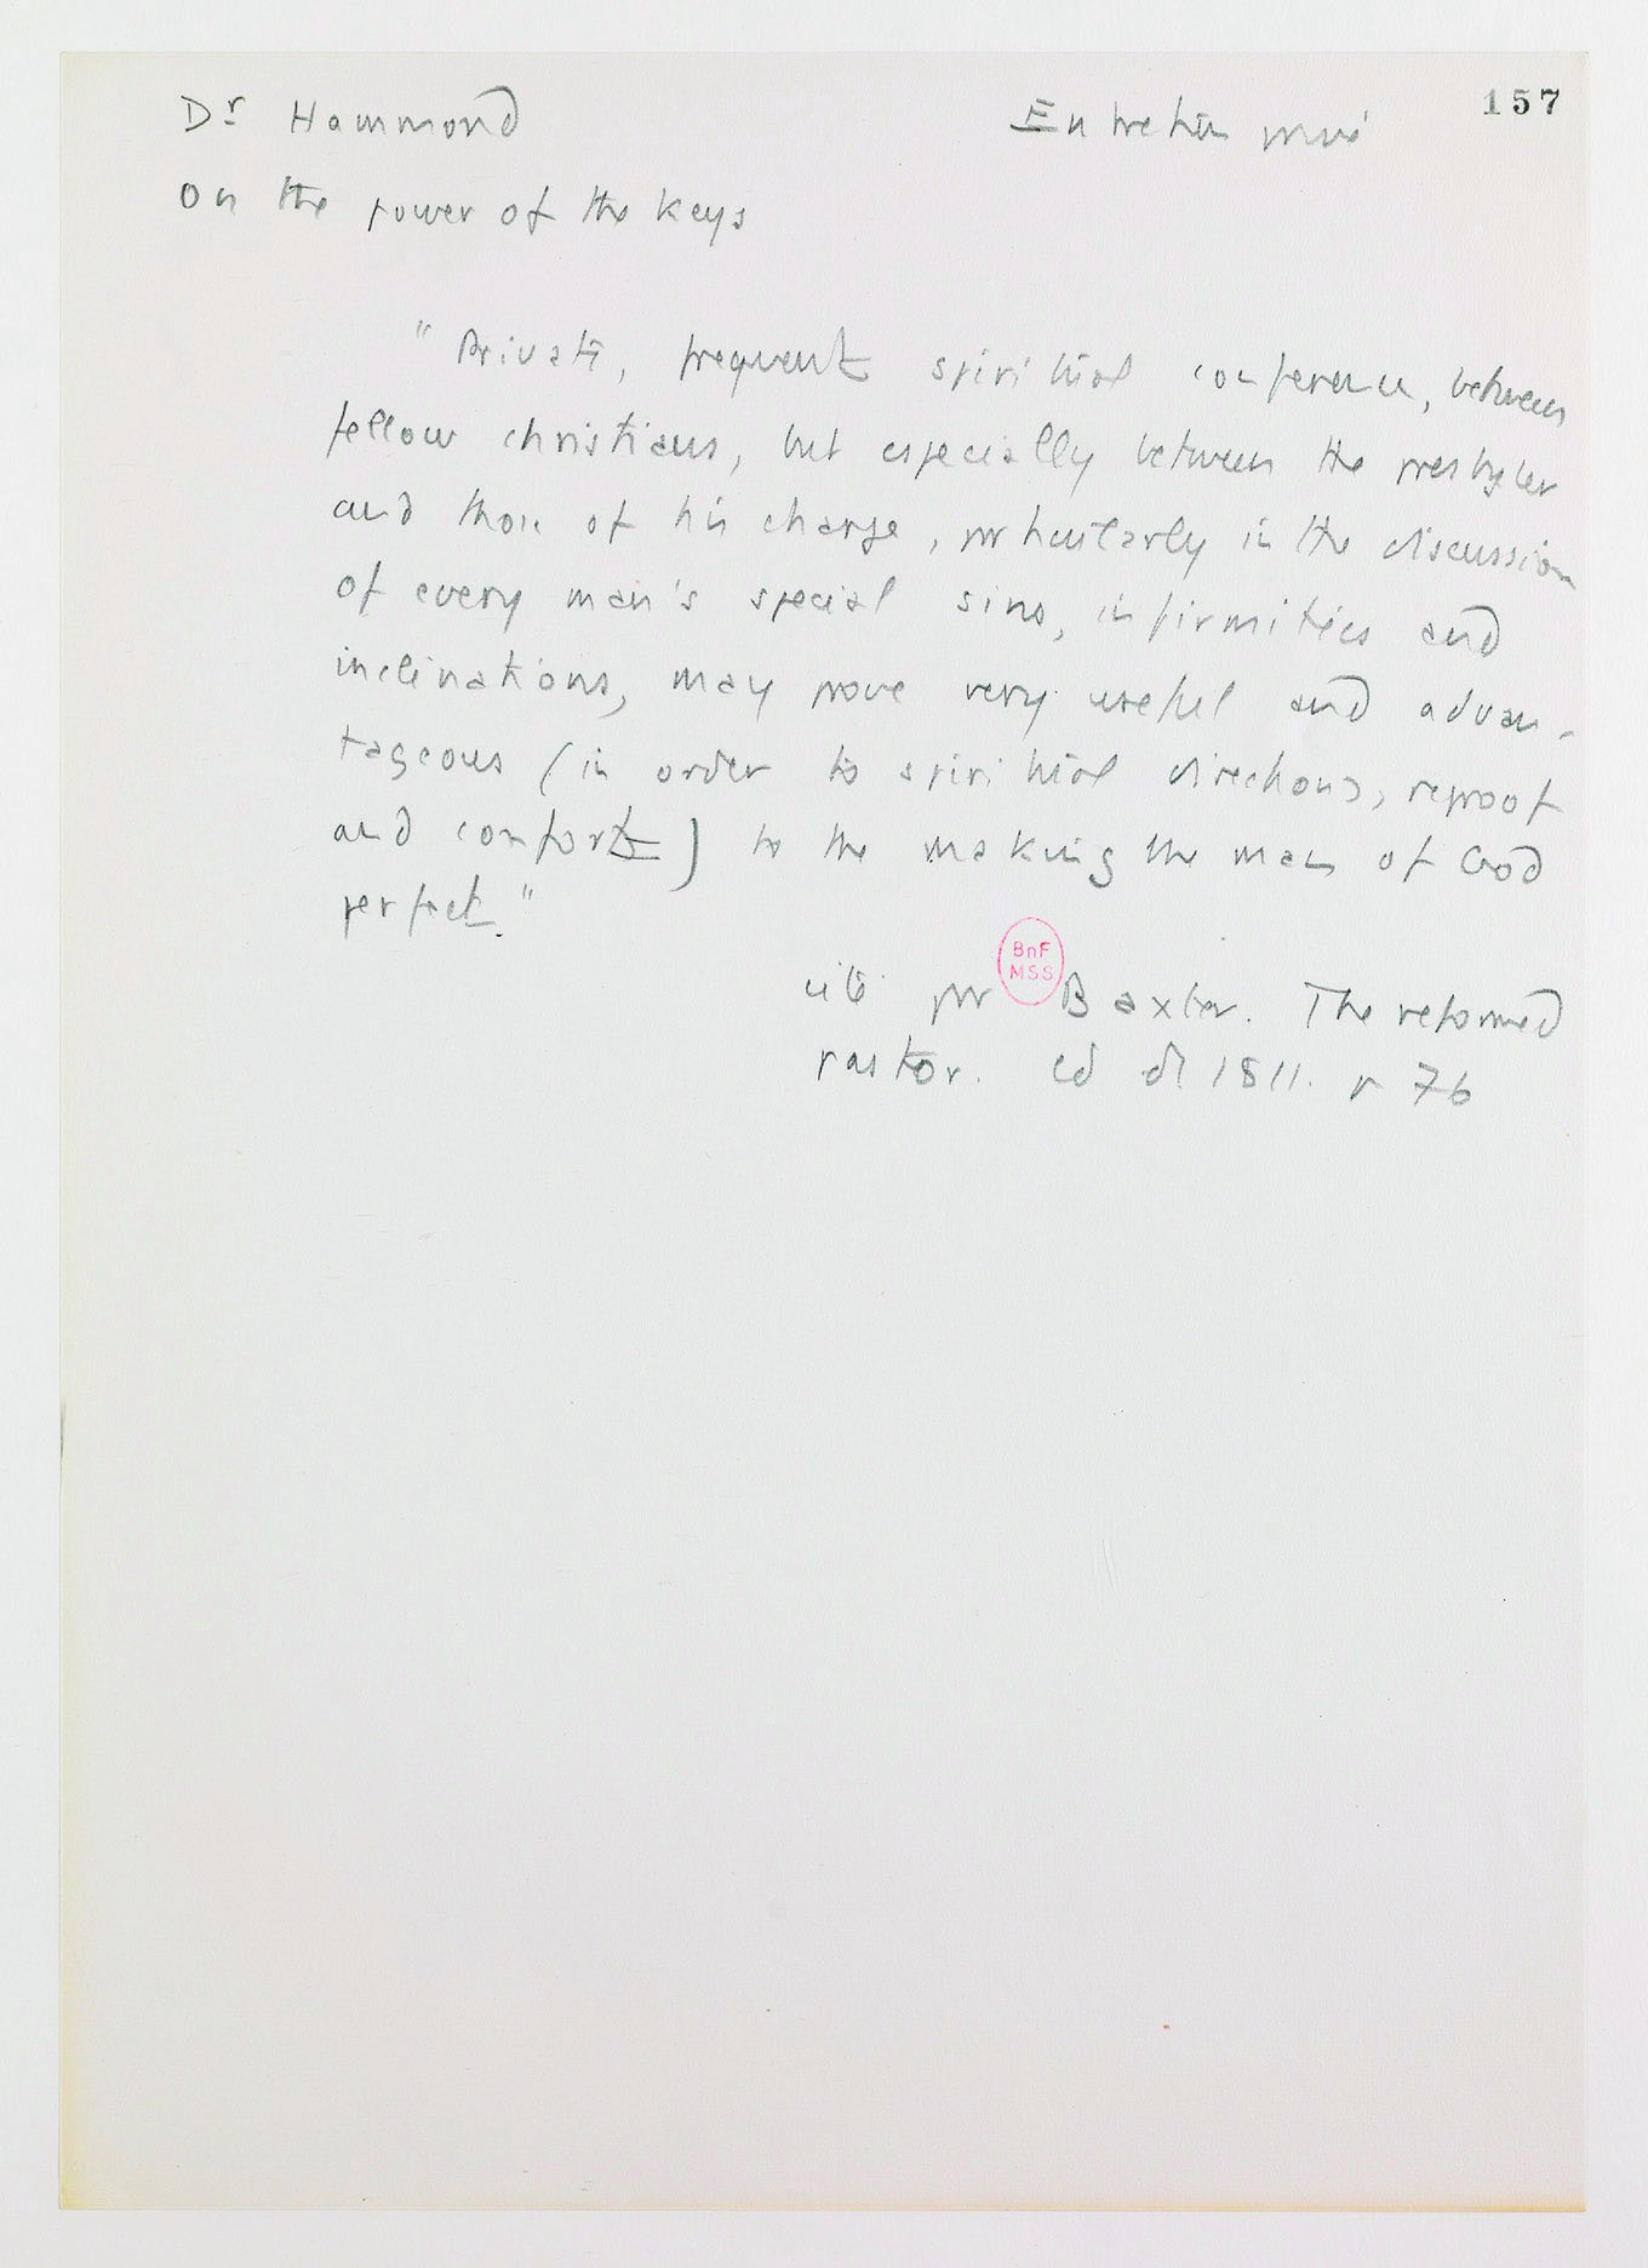 157
Dr Hammond
Entretien privé
On the power of the keys
"Private, frequent spiritual conference, between
fellow christians, but especially between the presbyter
and those of his charge, particularly in the discussion
of every man's special sins, infirmities and
inclinations, may prove very useful and advan-
tageous (in order to spiritual directions, reproof
and comfort) to the making the man of God
perfect."
BnF
MSS
cité par Baxter. The reformed
pastor. ed de 1811. p 76